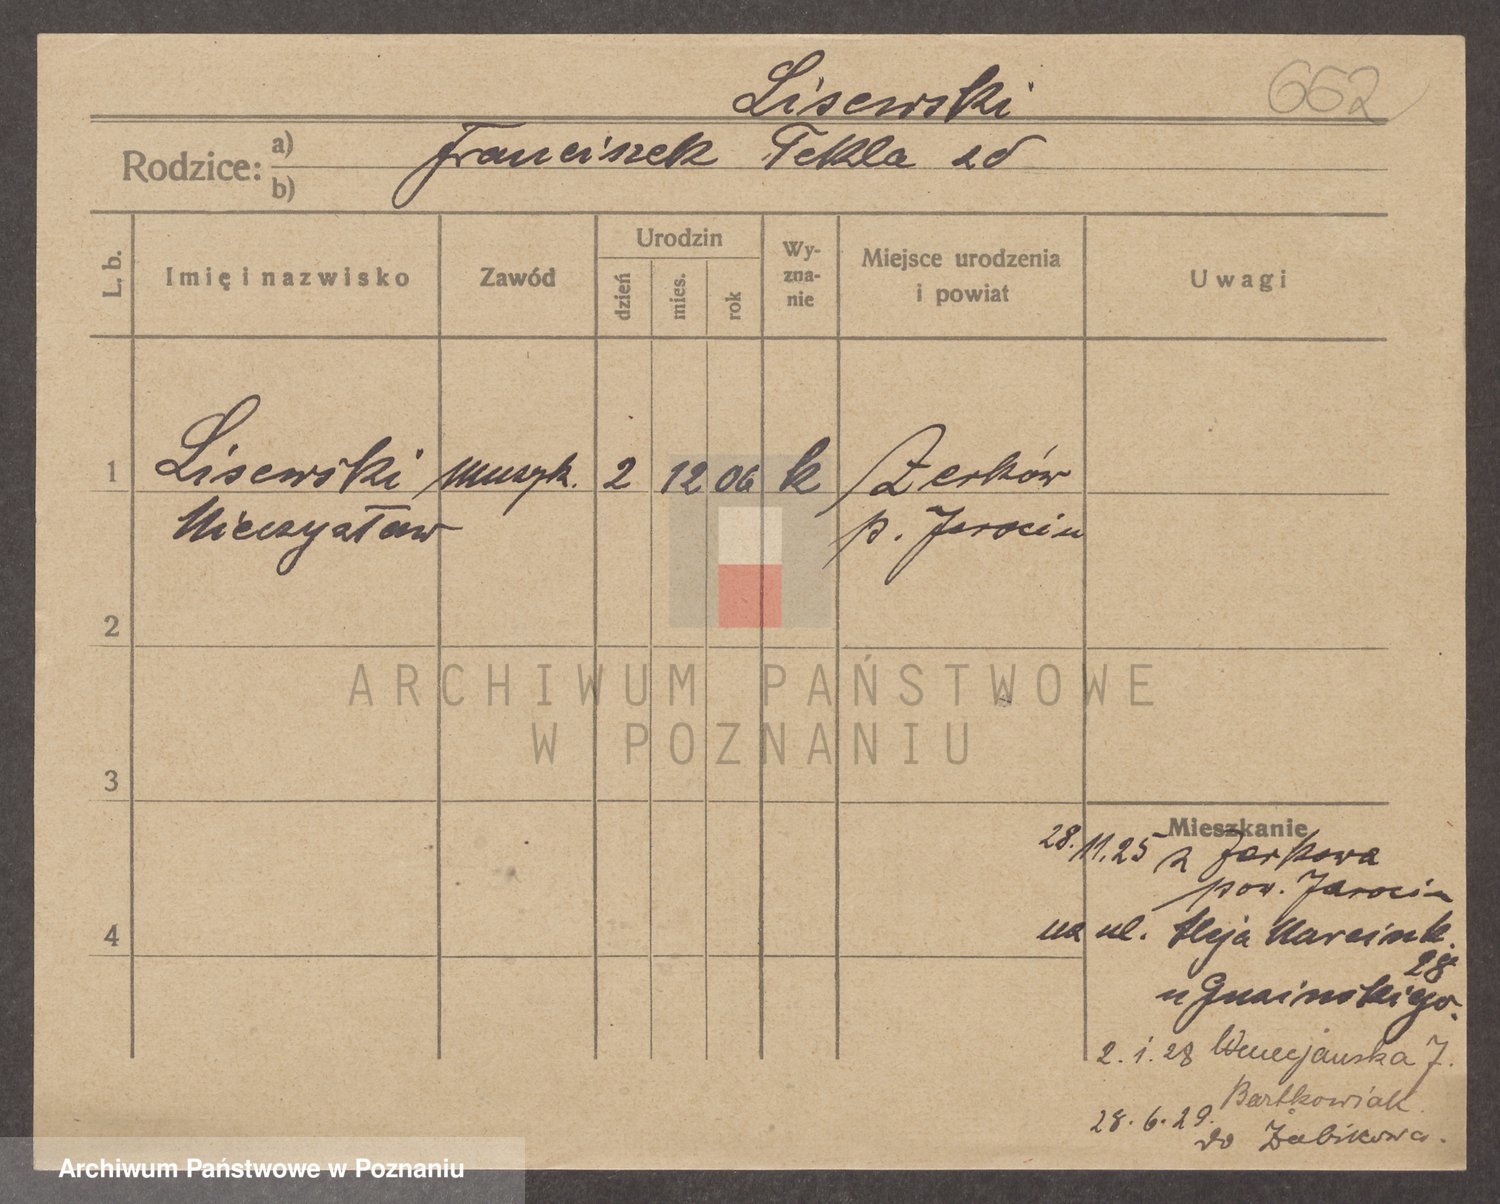 Lisewski
662
Rodzice: a) Franciszek Tekla zd
b)
L. b.
Imię i nazwisko
Zawód
Urodzin
dzień
mies.
rok
Wy-
zna-
nie
Miejsce urodzenia
i powiat
Uwagi
1 Lisewski muzyk. 2 12 06 k Żerków
Mieczysław p. Jarocin
2
3
4
ARCHIWUM PAŃSTWOWE
W POZNANIU
Mieszkanie
28.11.25 z Żerkowa
pow. Jarocin
na ul. Aleja Marcink.
28
u
2.1.28 Wenecjanska 7.
Bartkowiak
28.6.29.
do Żabikowa.
Archiwum Państwowe w Poznaniu